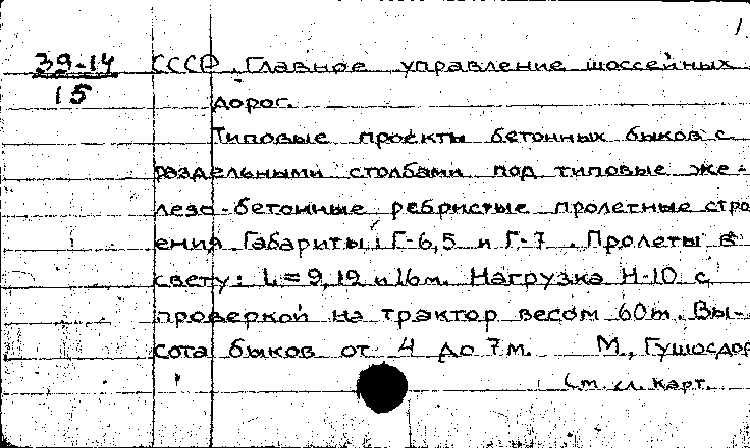 1
39-14 СССР. Главное управление шоссейных
15 дорог.
Типовые проекты бетонных быков с
раздельными столбами под типовые же-
лезо-бетонные ребристые пролетные стро
ения. Габариты: Г-6,5 и Г-7. Пролеты в
свету: L=9,12 и 16м. Нагрузка Н-10 с
проверкой на трактор весом 60т. Вы-
сота быков от 4 до 7м. М., Гушосдор
См. сл. карт.